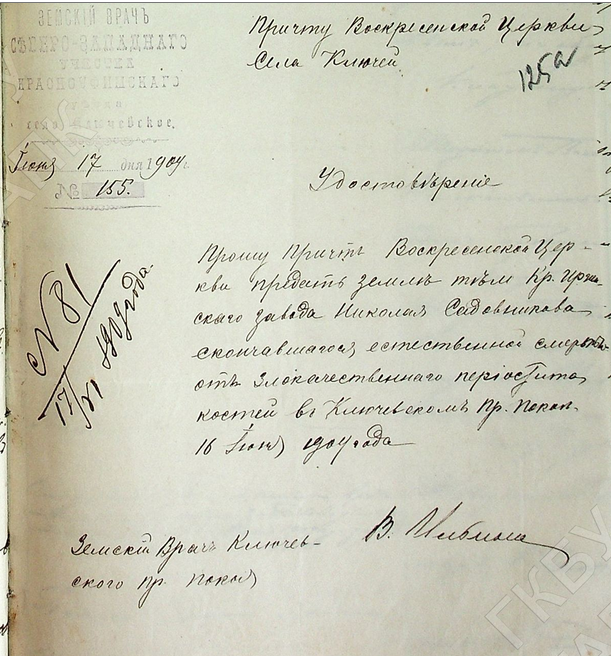 ЗЕМСКІЙ ВРАЧЪ
СѢВЕРО-ЗАПАДНАГО
УЧАСТКА
КРАСНОУФИМСКАГО
село Ключевское.
Іюня 17 дня 1904 г.
№ 155.
Причту Воскресенской Церкви
Села Ключей
125а
Удостовѣреніе
Прошу Причтъ Воскресенской Цер-
кви предать землѣ тѣло Кр.
скаго завода Николая Садовникова
скончавшагося естественной смертью
отъ Злокачественнаго періостита
костей въ Ключевскомъ Пр. Покоѣ
16 Іюня 1904 года
N 81
17/VI 1904 года.
Земскій Врачъ Ключев-
ского Пр. Покоя
В.
ГКБУ